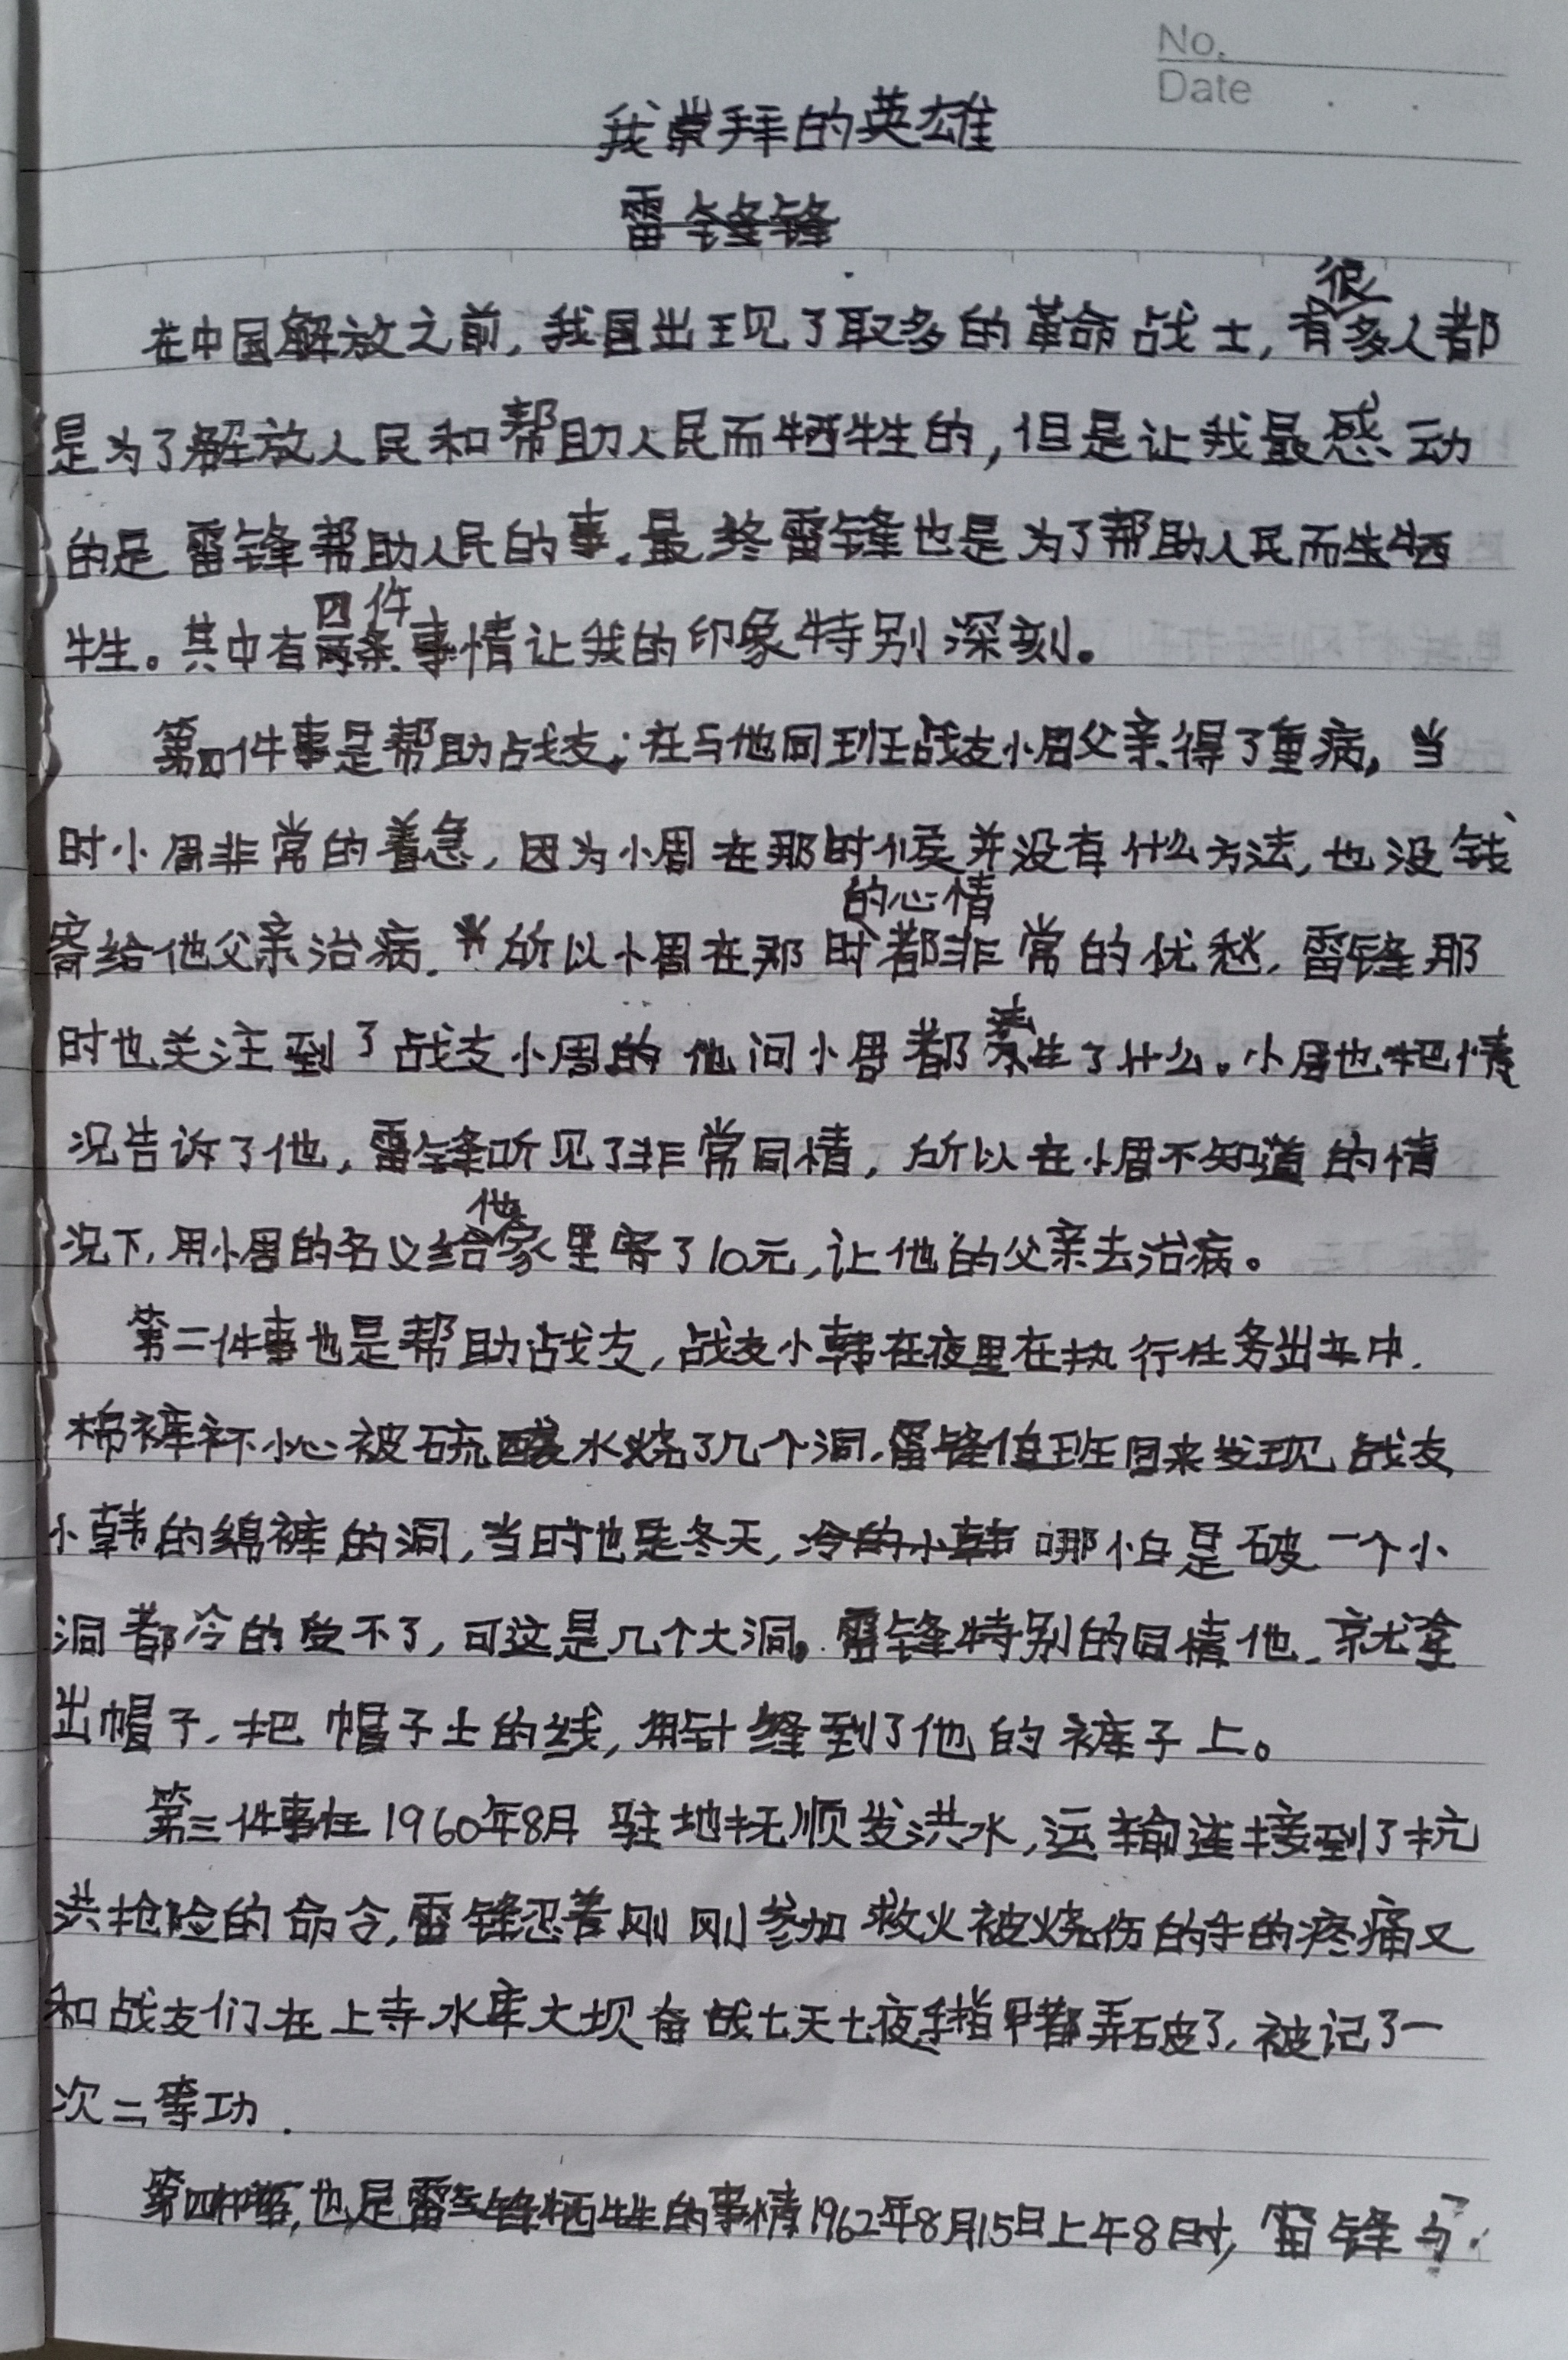 No.
Date
我崇拜的英雄
雷锋
在中国解放之前,我国出现了取多的革命战士,有很多人都
是为了解放人民和帮助人民而牺牲的,但是让我最感动
的是雷锋帮助人民的事.最终雷锋也是为了帮助人民而牺
牲。其中有四件事情让我的印象特别深刻。
第一件事是帮助战友;在与他同班战友小周父亲得了重病,当
时小周非常的着急,因为小周在那时候并没有什么方法,也没钱
寄给他父亲治病.所以小周在那时的心情都非常的忧愁,雷锋那
时也关注到了战友小周的他问小周都发生了什么。小周也把情
况告诉了他,雷锋听见了非常同情,所以在小周不知道的情
况下,用小周的名义给他家里寄了10元,让他的父亲去治病。
第二件事也是帮助战友,战友小韩在夜里在执行任务出车中.
棉裤不小心被硫酸水烧了几个洞.雷锋值班回来发现战友
小韩的绵裤的洞,当时也是冬天,哪怕是破一个小
洞都冷的受不了,可这是几个大洞。雷锋特别的同情他.就拿
出帽子.把帽子上的线,用针缝到了他的裤子上。
第三件事在1960年8月驻地抚顺发洪水,运输连接到了抗
洪抢险的命令,雷锋忍着刚刚参加救火被烧伤的手的疼痛又
和战友们在上寺水库大坝奋战七天七夜手指甲都弄破了,被记了一
次二等功.
第四件事,也是雷锋牺牲的事情1962年8月15日上午8时,雷锋与